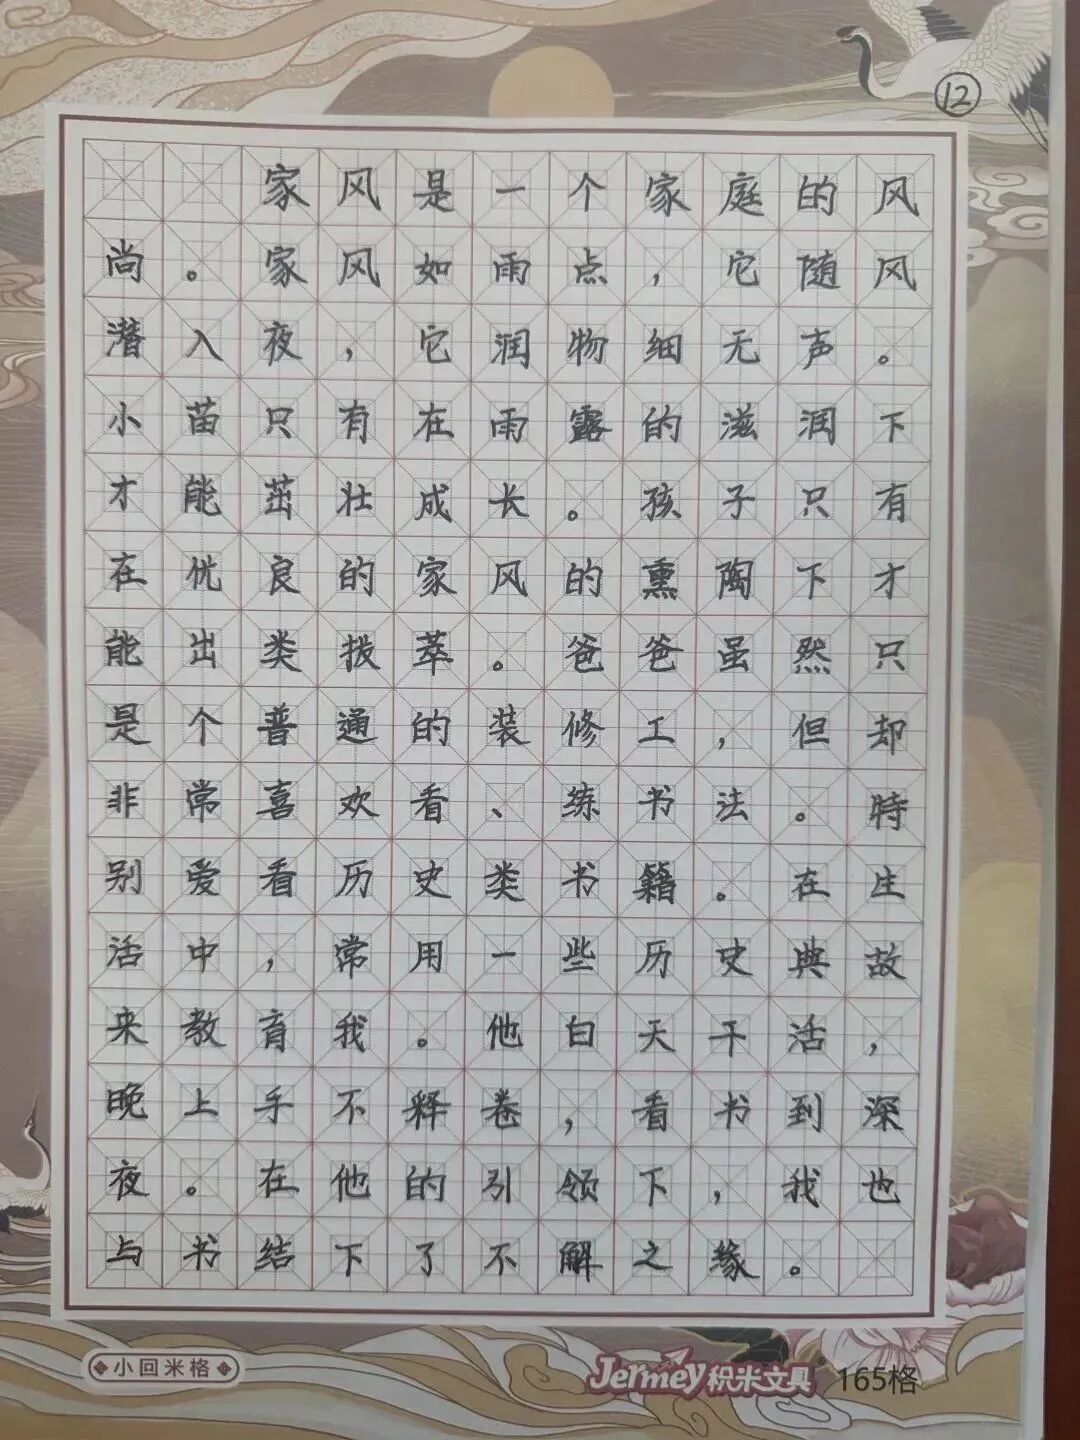 ⑫
家风是一个家庭的风
尚。家风如雨点，它随风
潜入夜，它润物细无声。
小苗只有在雨露的滋润下
才能茁壮成长。孩子只有
在优良的家风的熏陶下才
能出类拔萃。爸爸虽然只
是个普通的装修工，但却
非常喜欢看、练书法。特
别爱看历史类书籍。在生
活中，常用一些历史典故
来教育我。他白天干活，
晚上手不释卷，看书到深
夜。在他的引领下，我也
与书结下了不解之缘。
小回米格
Jermey积米文具 165格